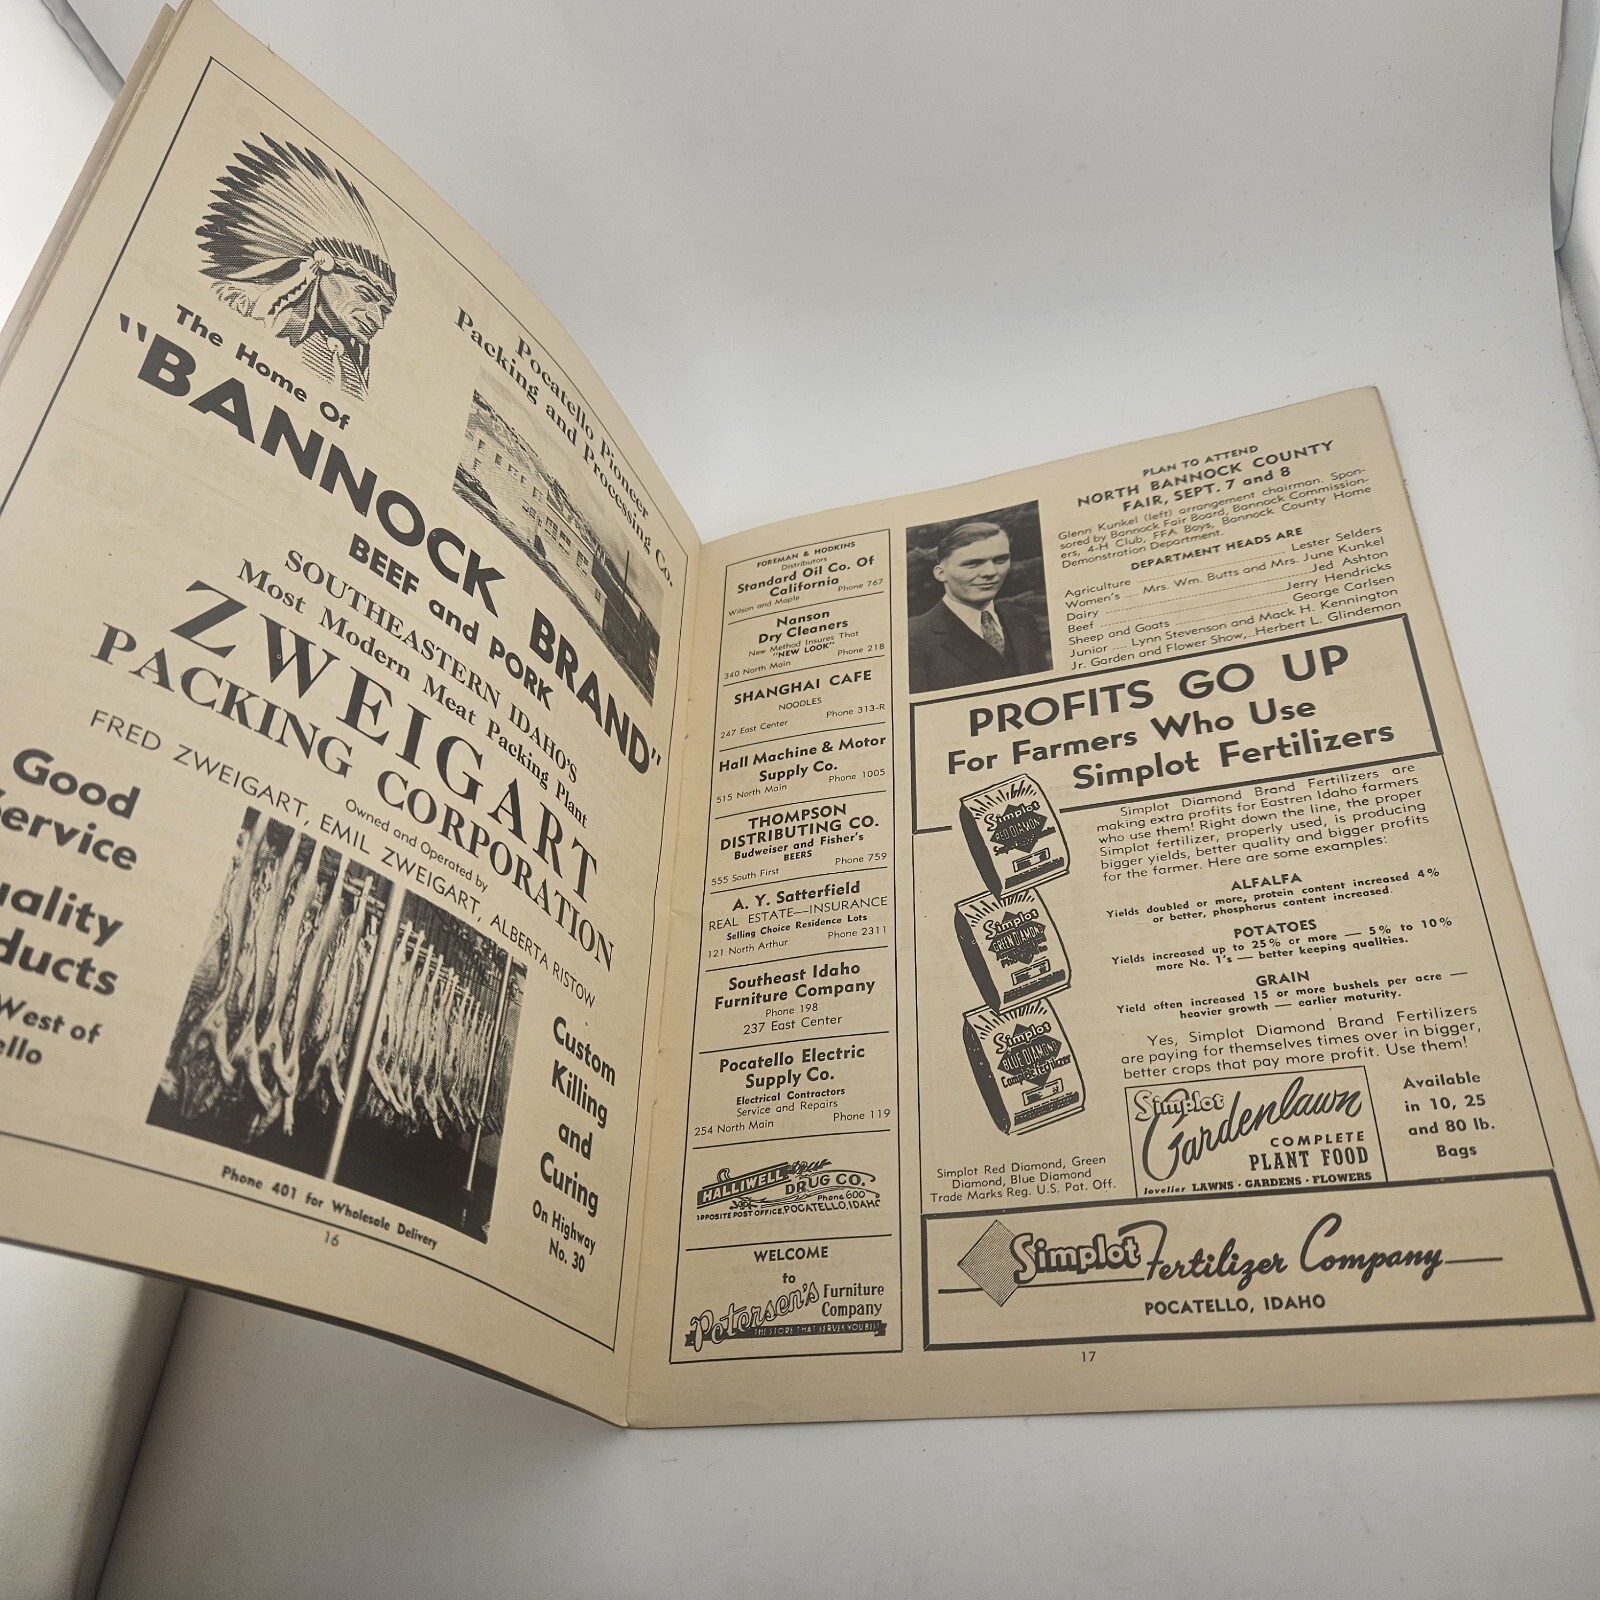 The Home Of
"BANNOCK BRAND"
BEEF and PORK
Pocatello Pioneer
Packing and Processing Co.
SOUTHEASTERN IDAHO'S
Most Modern Meat Packing Plant
ZWEIGART
PACKING CORPORATION
Owned and Operated by
FRED ZWEIGART, EMIL ZWEIGART, ALBERTA RISTOW
Good
Service
ality
ducts
West of
ello
Custom
Killing
and
Curing
On Highway
No. 30
Phone 401 for Wholesale Delivery
16
FOREMAN & HODKINS
Distributors
Standard Oil Co. Of
California
Wilson and Maple Phone 767
Nanson
Dry Cleaners
New Method Insures That
"NEW LOOK"
340 North Main Phone 218
SHANGHAI CAFE
NOODLES
247 East Center Phone 313-R
Hall Machine & Motor
Supply Co.
515 North Main Phone 1005
THOMPSON
DISTRIBUTING CO.
Budweiser and Fisher's
BEERS
555 South First Phone 759
A. Y. Satterfield
REAL ESTATE—INSURANCE
Selling Choice Residence Lots
121 North Arthur Phone 2311
Southeast Idaho
Furniture Company
Phone 198
237 East Center
Pocatello Electric
Supply Co.
Electrical Contractors
Service and Repairs
254 North Main Phone 119
HALLIWELL
DRUG CO.
Phone 600
OPPOSITE POST OFFICE, POCATELLO, IDAHO
WELCOME
to
Petersen's Furniture
Company
THE STORE THAT SERVES YOU BEST
PLAN TO ATTEND
NORTH BANNOCK COUNTY
FAIR, SEPT. 7 and 8
Glenn Kunkel (left) arrangement chairman. Spon-
sored by Bannock Fair Board, Bannock Commission-
ers, 4-H Club, FFA Boys, Bannock County Home
Demonstration Department.
DEPARTMENT HEADS ARE
Agriculture ........ Lester Selders
Women's .... Mrs. Wm. Butts and Mrs. June Kunkel
Dairy ........ Jed Ashton
Beef ........ Jerry Hendricks
Sheep and Goats ........ George Carlsen
Junior .... Lynn Stevenson and Mack H. Kennington
Jr. Garden and Flower Show, Herbert L. Glindeman
PROFITS GO UP
For Farmers Who Use
Simplot Fertilizers
Simplot Diamond Brand Fertilizers are
making extra profits for Eastren Idaho farmers
who use them! Right down the line, the proper
Simplot fertilizer, properly used, is producing
bigger yields, better quality and bigger profits
for the farmer. Here are some examples:
ALFALFA
Yields doubled or more, protein content increased 4%
or better, phosphorus content increased.
POTATOES
Yields increased up to 25% or more — 5% to 10%
more No. 1's — better keeping qualities.
GRAIN
Yield often increased 15 or more bushels per acre —
heavier growth — earlier maturity.
Yes, Simplot Diamond Brand Fertilizers
are paying for themselves times over in bigger,
better crops that pay more profit. Use them!
Simplot
RED DIAMOND
Simplot
GREEN DIAMOND
Simplot
BLUE DIAMOND
Complete Fertilizer
Simplot Red Diamond, Green
Diamond, Blue Diamond
Trade Marks Reg. U.S. Pat. Off.
Simplot
Gardenlawn
COMPLETE
PLANT FOOD
lovelier LAWNS · GARDENS · FLOWERS
Available
in 10, 25
and 80 lb.
Bags
Simplot Fertilizer Company
POCATELLO, IDAHO
17